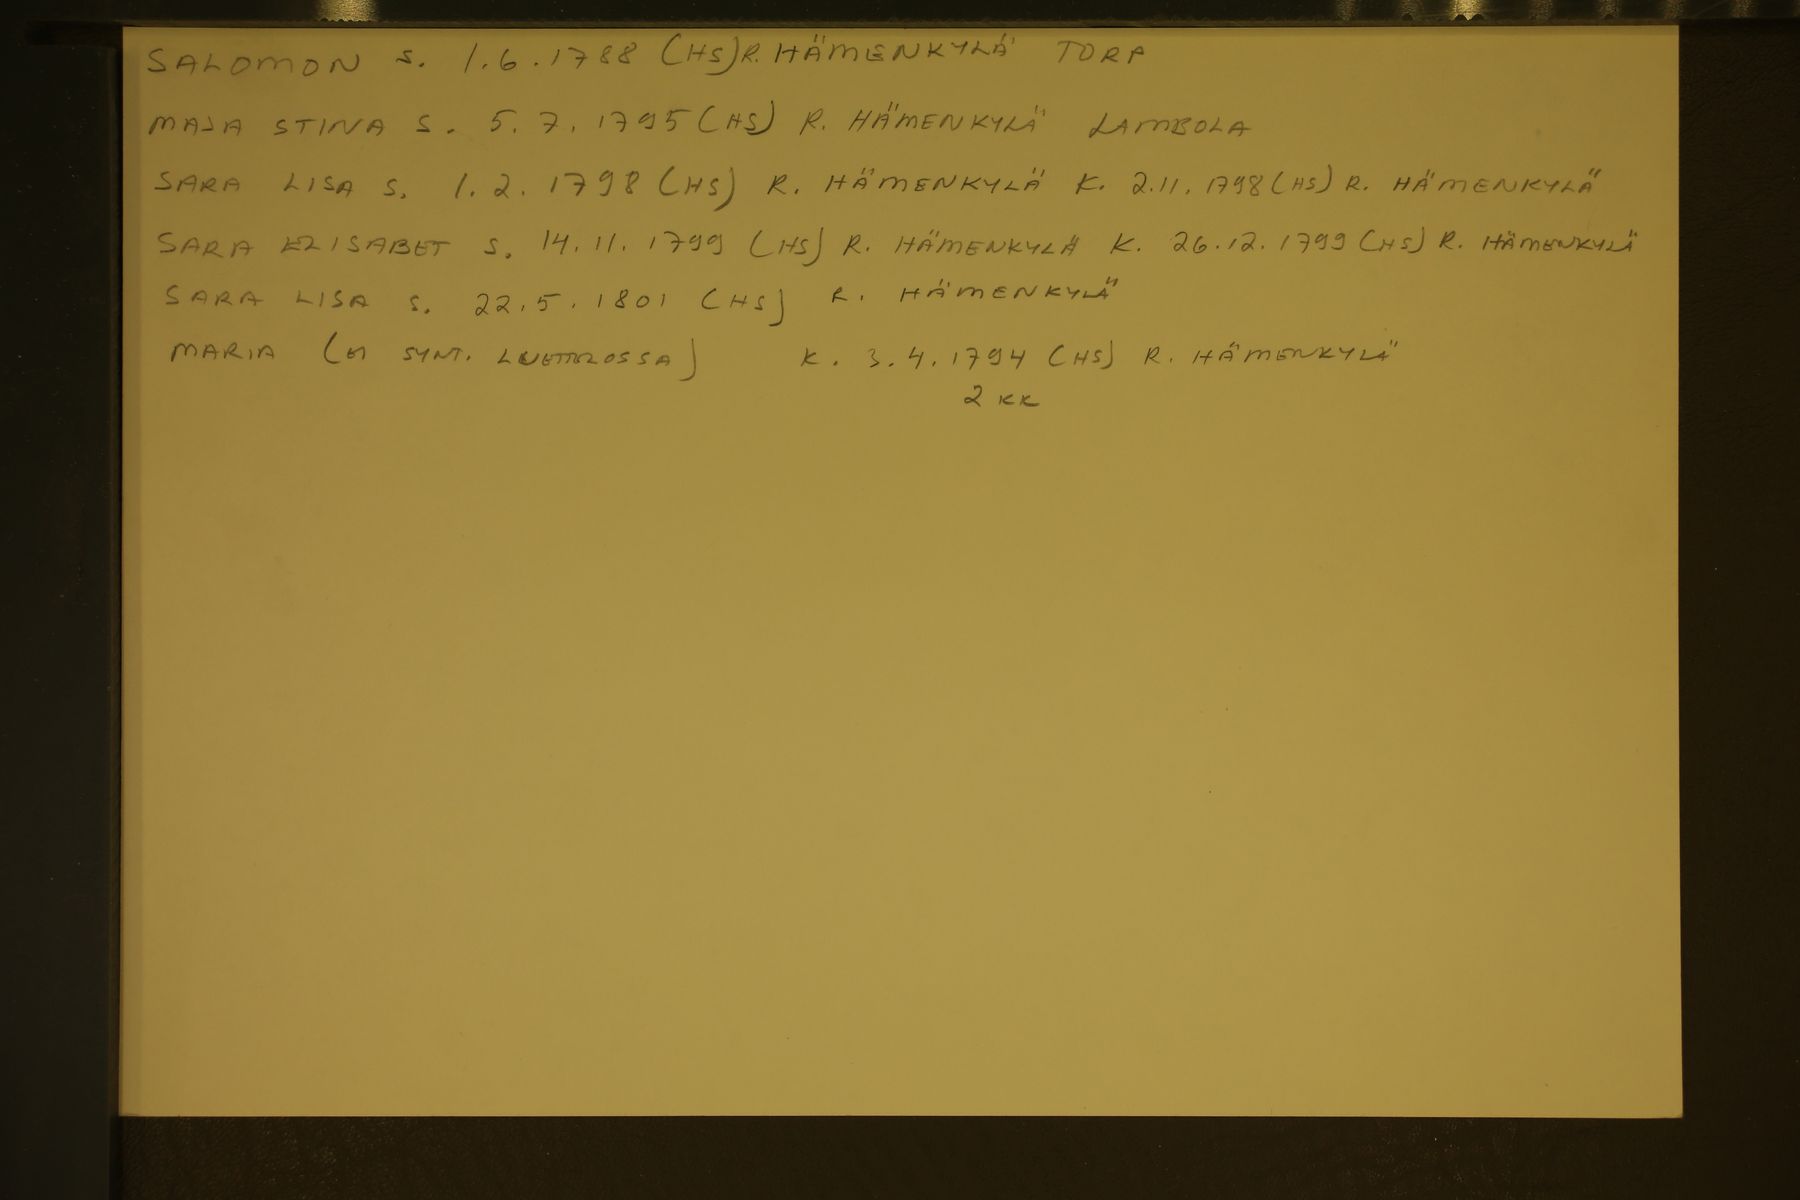 SALOMON S. 1.6.1788 (HS) R. HÄMENKYLÄ TORP
MAJA STINA S. 5.7.1795 (HS) R. HÄMENKYLÄ LAMBOLA
SARA LISA S. 1.2.1798 (HS) R. HÄMENKYLÄ K. 2.11.1798 (HS) R. HÄMENKYLÄ
SARA ELISABET S. 14.11.1799 (HS) R. HÄMENKYLÄ K. 26.12.1799 (HS) R. HÄMENKYLÄ
SARA LISA S. 22.5.1801 (HS) R. HÄMENKYLÄ
MARIA (EI SYNT. LUETTELOSSA) K. 3.4.1794 (HS) R. HÄMENKYLÄ
2 KK